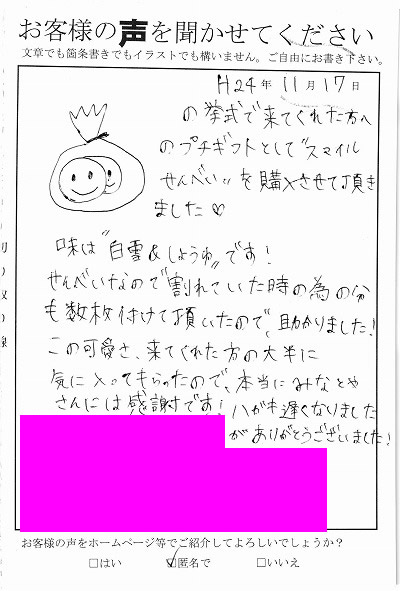 お客様の声を聞かせてください
文章でも箇条書きでもイラストでも構いません。ご自由にお書き下さい。
H24年 11月17日
の挙式で来てくれた方へ
のプチギフトとして"スマイル
せんべい"を購入させて頂き
ました♡
味は"白雪&しょうゆ"です!
せんべいなので"割れていた時の為の分
も数枚付けて頂いたので、助かりました!
この可愛さ、来てくれた方の大半に
気に入ってもらったので、本当にみなとや
さんには感謝です!ハガキ遅くなりました
がありがとうございました!
お客様の声をホームページ等でご紹介してよろしいでしょうか?
□はい ☑匿名で □いいえ